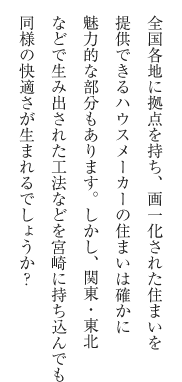 全国各地に拠点を持ち、画一化された住まいを
提供できるハウスメーカーの住まいは確かに
魅力的な部分もあります。しかし、関東・東北
などで生み出された工法などを宮崎に持ち込んでも
同様の快適さが生まれるでしょうか？